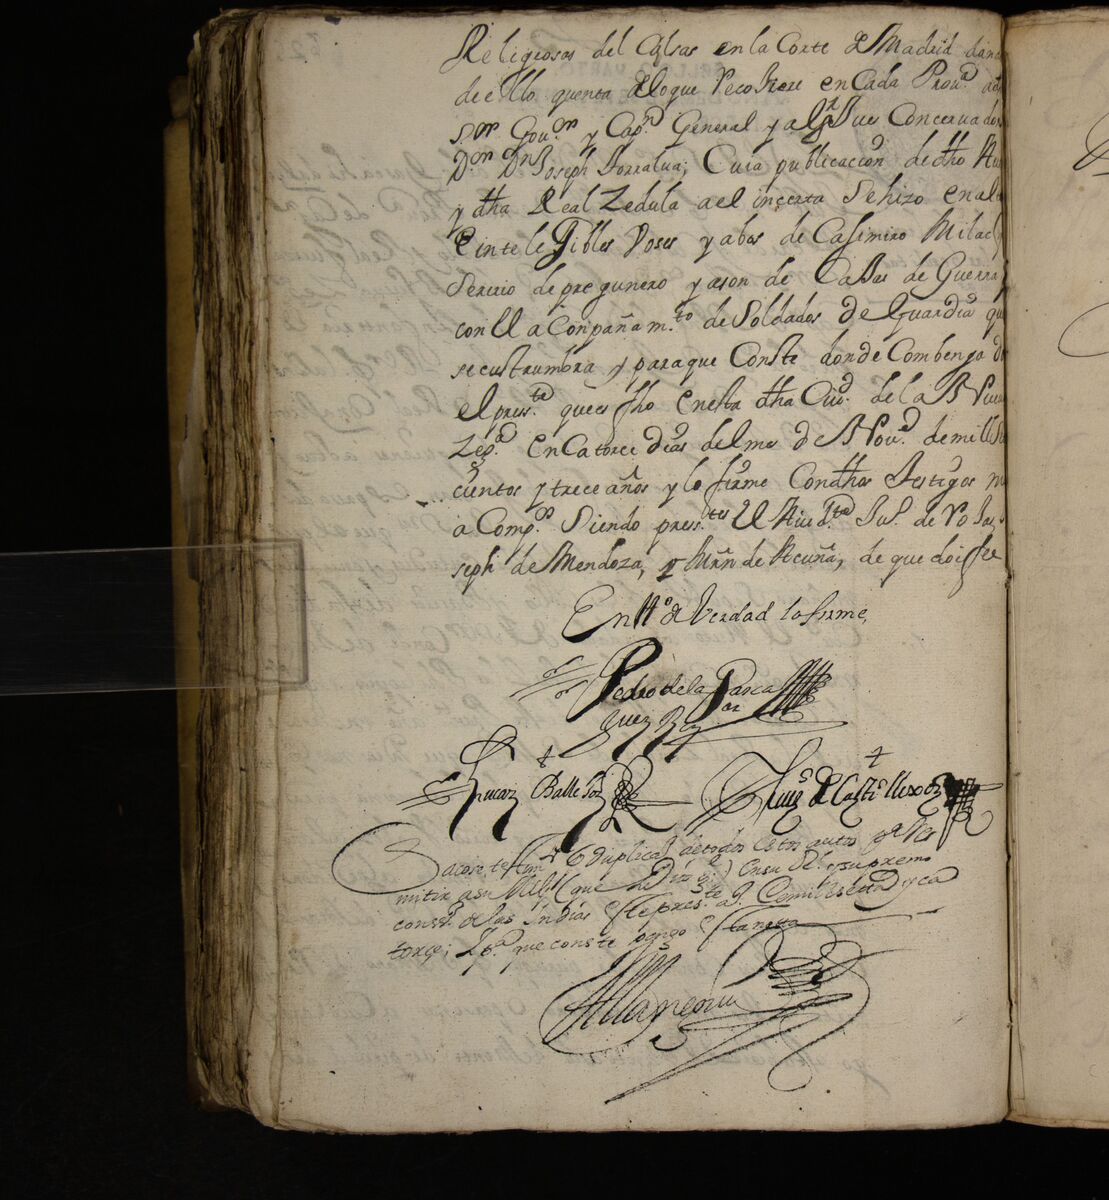 Religiosos del Calsas en la Corte de Madrid dan
de ello quenta de lo que Recoxiere en Cada Prou.ª
s.or Gou.or y Cap.n General y al Juez Concervador
D.or D.n Joseph Torralua; Cuia publicacion de dho Au
y dha Real Zedula a el incerta Se hizo en al
e intelegibles Voses y a bos de Casimiro
Servio de pregunero y a son de Caxas de Guerra
con el Aconpañam.to de Soldados de Guardia qu
se custrumbra y para que Conste donde Combenga d
el pres.te que es fho en esta dha Ciud. de la Nueua
Zeg.ª en Catorce dias del mes de Nou.e de mill Se
cientos y trece años y lo firme Con dhos Testigos
a Comp.s Siendo pres.tes el de
seph de Mendoza, y Mrn de Acuña, de que doi fee
En tt.o de Verdad lo firme,
Pedro de la Parca
Juez
Lucaz Balle
Luis de Castillexo
Sacose testim.o duplicado de todos estos autos p.a Re
mitir a su Mag.d (que Dios g.e) en su R.l y supremo
conss.o de las Indias este pres.te a.o de mil setes.os y ca
torçe; y p.a que conste pongo esta nota